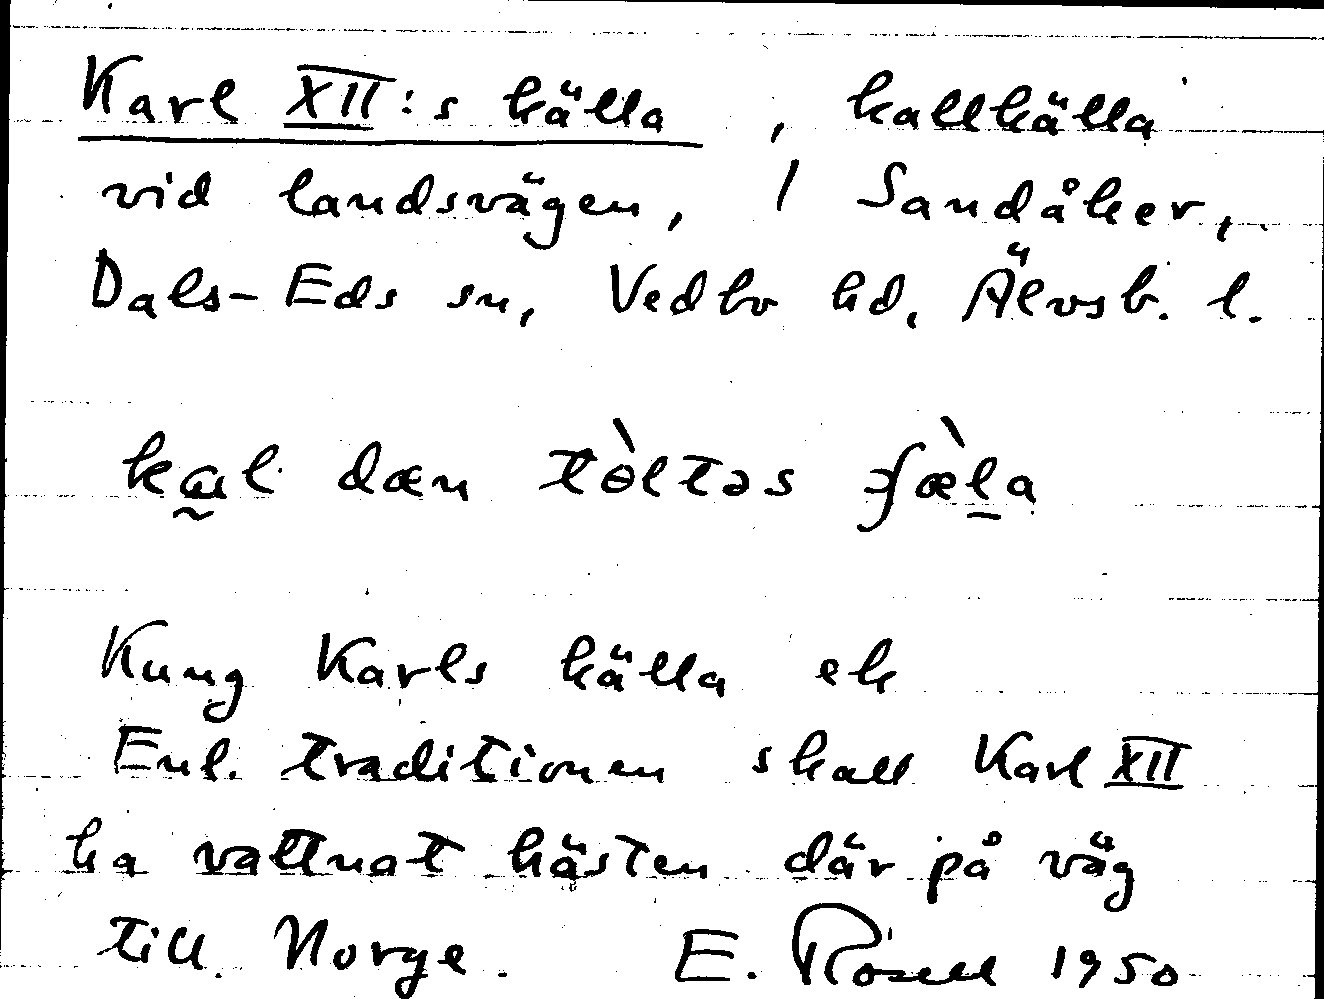 Karl XII:s källa, kallkälla
vid landsvägen, 1 Sandåker,
Dals-Eds sn, Vedbo hd, Älvsb. l.
dæn tɵ̀ltəs
Kung Karls källa ek
Enl. traditionen skall Karl XII
ha vattnat hästen där på väg
till Norge. E. Rosell 1950